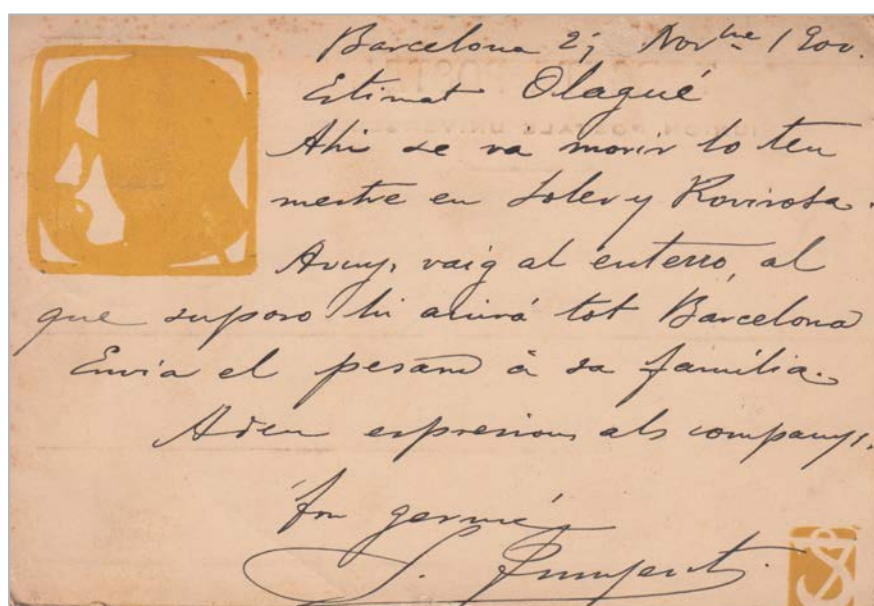 Barcelona 27 Novbre 1900.
Estimat Olagué
Ahi se va morir lo teu
mestre en Soler y Rovirosa.
Avuy, vaig al enterro, al
que suposo hi anirá tot Barcelona
Envia el pesam á sa família.
Adeu expresions als companys.
Ton germá
S. Junyent.
SJ